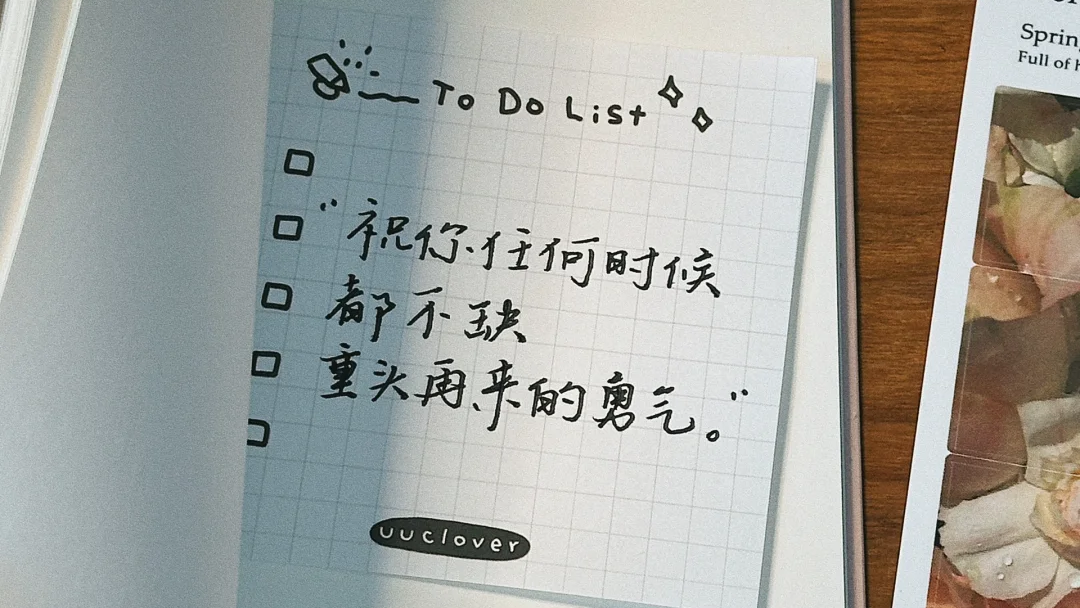 To Do List
“祝你任何时候
都不缺
重头再来的勇气。”
uuclover
Spring
Full of